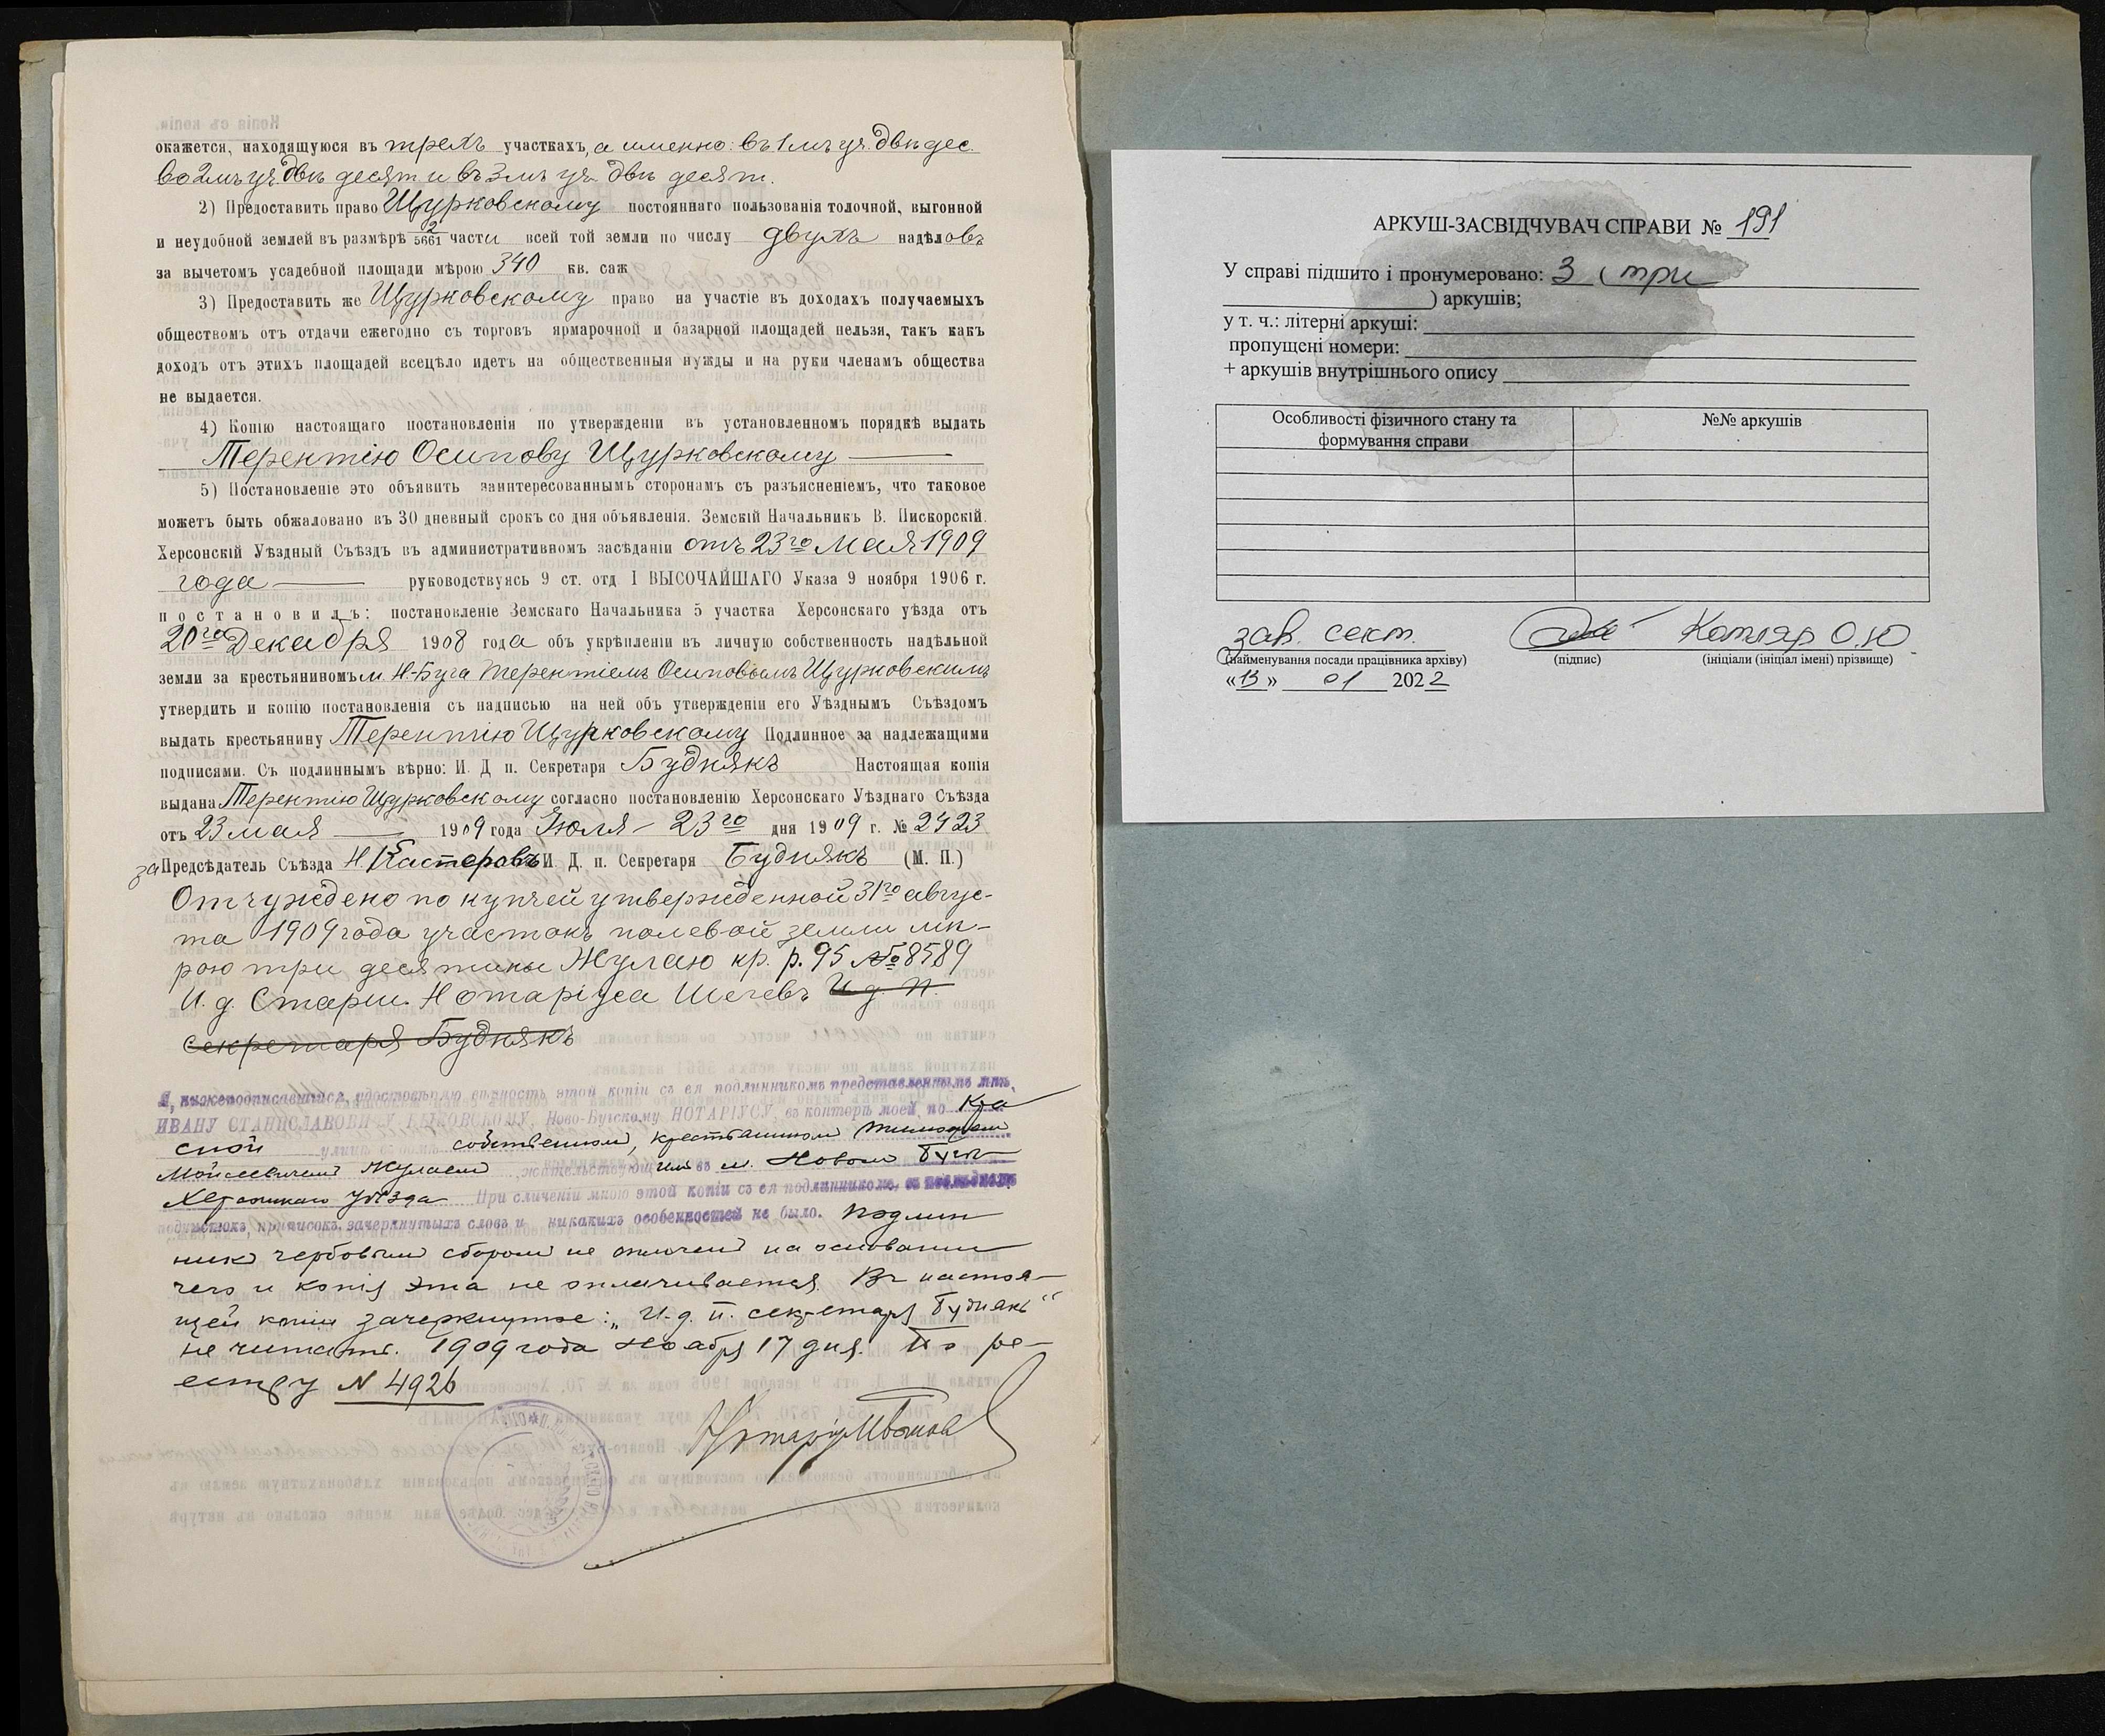 окажется, находящуюся въ трехъ участкахъ, а именно: въ 1мъ уч. двѣ дес.
во 2мъ уч. двѣ десят и въ 3мъ уч. двѣ десят.
2) Предоставить право Щурковскому постояннаго пользованія толочной, выгонной
и неудобной землей въ размѣрѣ 2/5661 части всей той земли по числу двухъ надѣловъ
за вычетомъ усадебной площади мѣрою 340 кв. саж
3) Предоставить же Щурковскому право на участіе въ доходахъ получаемыхъ
обществомъ отъ отдачи ежегодно съ торговъ ярмарочной и базарной площадей нельзя, такъ какъ
доходъ отъ этихъ площадей всецѣло идетъ на общественныя нужды и на руки членамъ общества
не выдается.
4) Копію настоящаго постановленія по утвержденіи въ установленномъ порядкѣ выдать
Терентію Осипову Щурковскому
5) Постановленіе это объявить заинтересованнымъ сторонамъ съ разъясненіемъ, что таковое
можетъ быть обжаловано въ 30 дневный срокъ со дня объявленія. Земскій Начальникъ В. Пискорскій.
Херсонскій Уѣздный Съѣздъ въ административномъ засѣданіи отъ 23го Мая 1909
года руководствуясь 9 ст. отд I ВЫСОЧАЙШАГО Указа 9 ноября 1906 г.
постановилъ: постановленіе Земскаго Начальника 5 участка Херсонскаго уѣзда отъ
20го Декабря 1908 года объ укрѣпленіи въ личную собственность надѣльной
земли за крестьяниномъ м. Н.-Буга Терентіемъ Осиповымъ Щурковскимъ
утвердить и копію постановленія съ надписью на ней объ утвержденіи его Уѣзднымъ Съѣздомъ
выдать крестьянину Терентію Щурковскому Подлинное за надлежащими
подписями. Съ подлиннымъ вѣрно: И. Д п. Секретаря Буднякъ Настоящая копія
выдана Терентію Щурковскому согласно постановленію Херсонскаго Уѣзднаго Съѣзда
отъ 23 мая 1909 года Іюля 23го дня 1909 г. № 2423
за Предсѣдатель Съѣзда Н. Касперовъ И Д. п. Секретаря Буднякъ (М. П.)
Отчуждено по купчей утвержденной 31го авгус-
та 1909 года участокъ полевой земли мѣ-
рою три десятины Жулаю кр. р. 95 № 8589
И. д. Старш. Нотаріуса Шегевъ И. д. п.
секретаря Буднякъ
Я, нижеподписавшійся, удостовѣряю вѣрность этой копіи съ ея подлинникомъ представленнымъ мнѣ,
ИВАНУ СТАНИСЛАВОВИЧУ БЫКОВСКОМУ, Ново-Бугскому НОТАРІУСУ, въ конторѣ моей, по Кра
сной улицѣ собственном, крестьянином Тимофеем
Мойсеевичем Жулаем жительствующим въ м. Новом Бугѣ
Херсонскаго уѣзда При сличеніи мною этой копіи съ ея подлинникомъ, въ послѣднемъ
подчистокъ, приписокъ, зачеркнутыхъ словъ и никакихъ особенностей не было. Подлин
ник гербовым сбором не оплачен на основании
чего и копія эта не оплачивается. Въ настоя-
щей копіи зачеркнутое: „И. д. п. секретаря Буднякъ“
не читать. 1909 года Ноября 17 дня. По ре-
естру N 4926
Нотаріус
АРКУШ-ЗАСВІДЧУВАЧ СПРАВИ № 191
У справі підшито і пронумеровано: 3 ( три
) аркушів;
у т. ч.: літерні аркуші:
пропущені номери:
+ аркушів внутрішнього опису
Особливості фізичного стану та формування справи №№ аркушів
зав. сект. Котляр О.Ю.
(найменування посади працівника архіву) (підпис) (ініціали (ініціал імені) прізвище)
«13» 01 2022